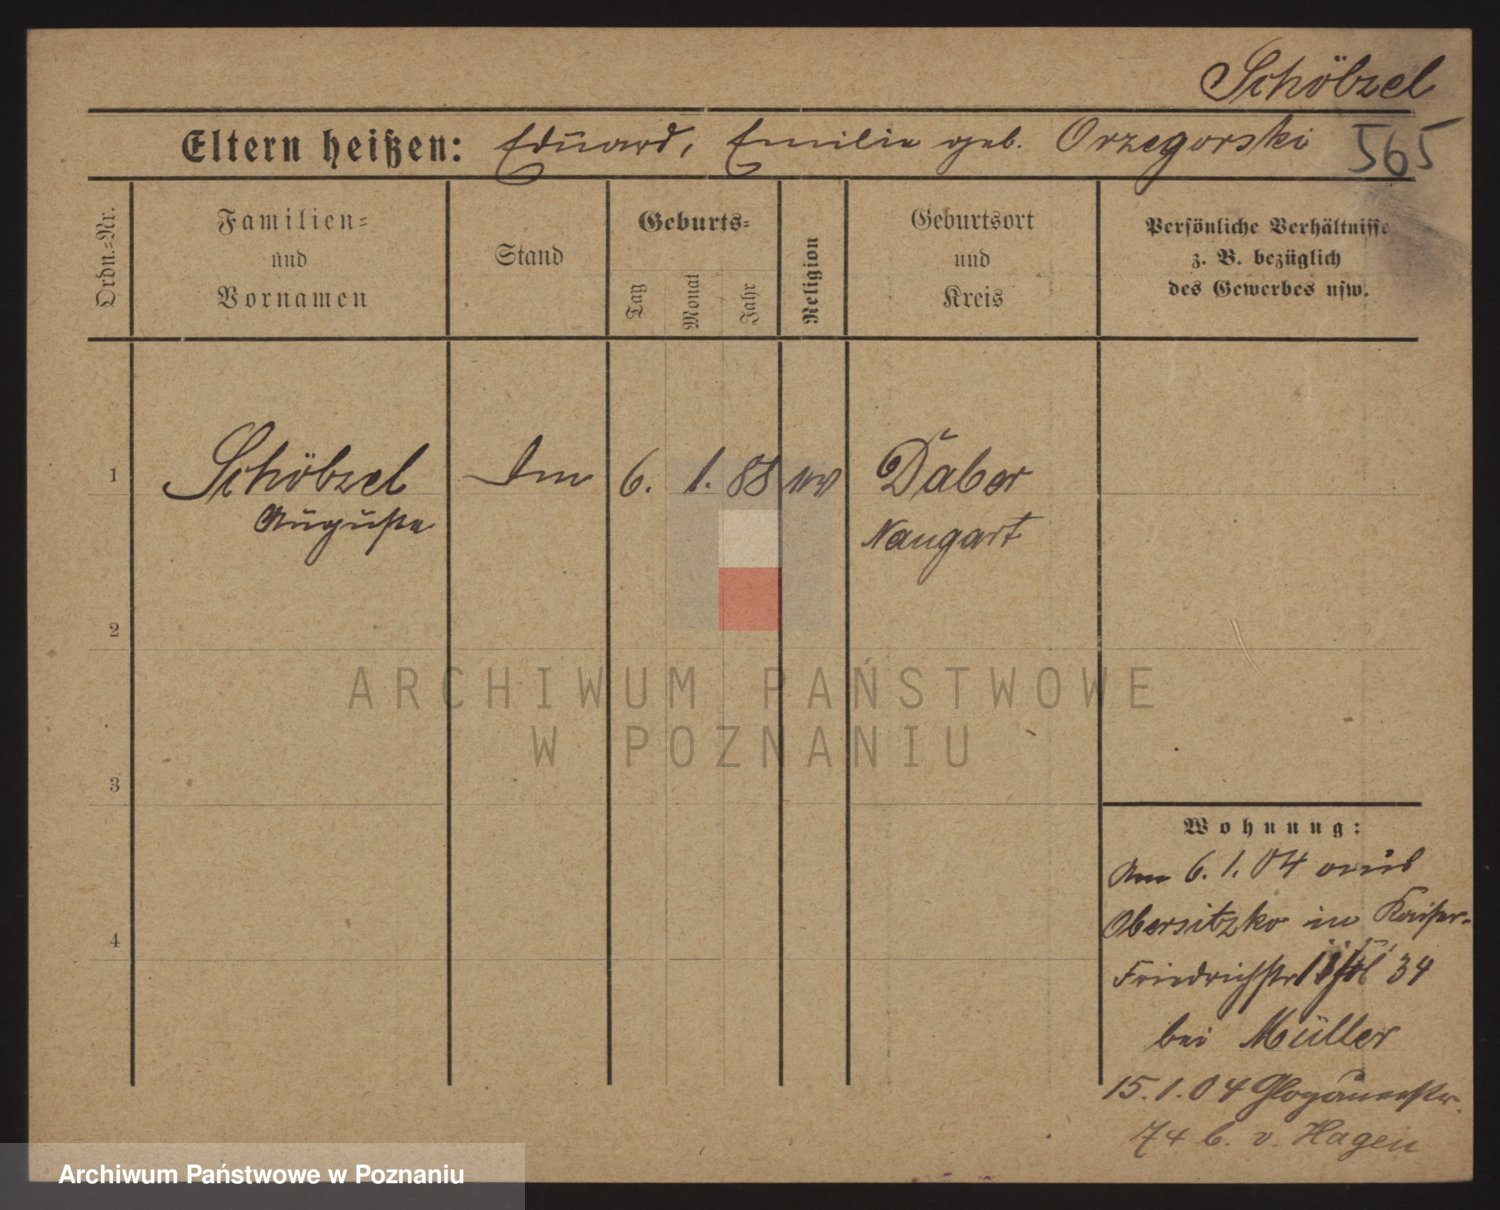 Schöbzel
Eltern heißen: Eduard, Emilie geb. Orzegorski 565
Ordn.=Nr.
Familien=
und
Vornamen
Stand
Geburts=
Tag
Monat
Jahr
Religion
Geburtsort
und
Kreis
Persönliche Verhältnisse
z. B. bezüglich
des Gewerbes usw.
1 Schöbzel 6. 1. 88 Daber
Auguste Naugart
2
3
4
ARCHIWUM PAŃSTWOWE
W POZNANIU
Wohnung:
Am 6. 1. 04 aus
Obersitzko in Kaiser-
Friedrichstr 34
bei Müller
15. 1. 04 Glogauerstr.
74 b. v. Hagen
Archiwum Państwowe w Poznaniu